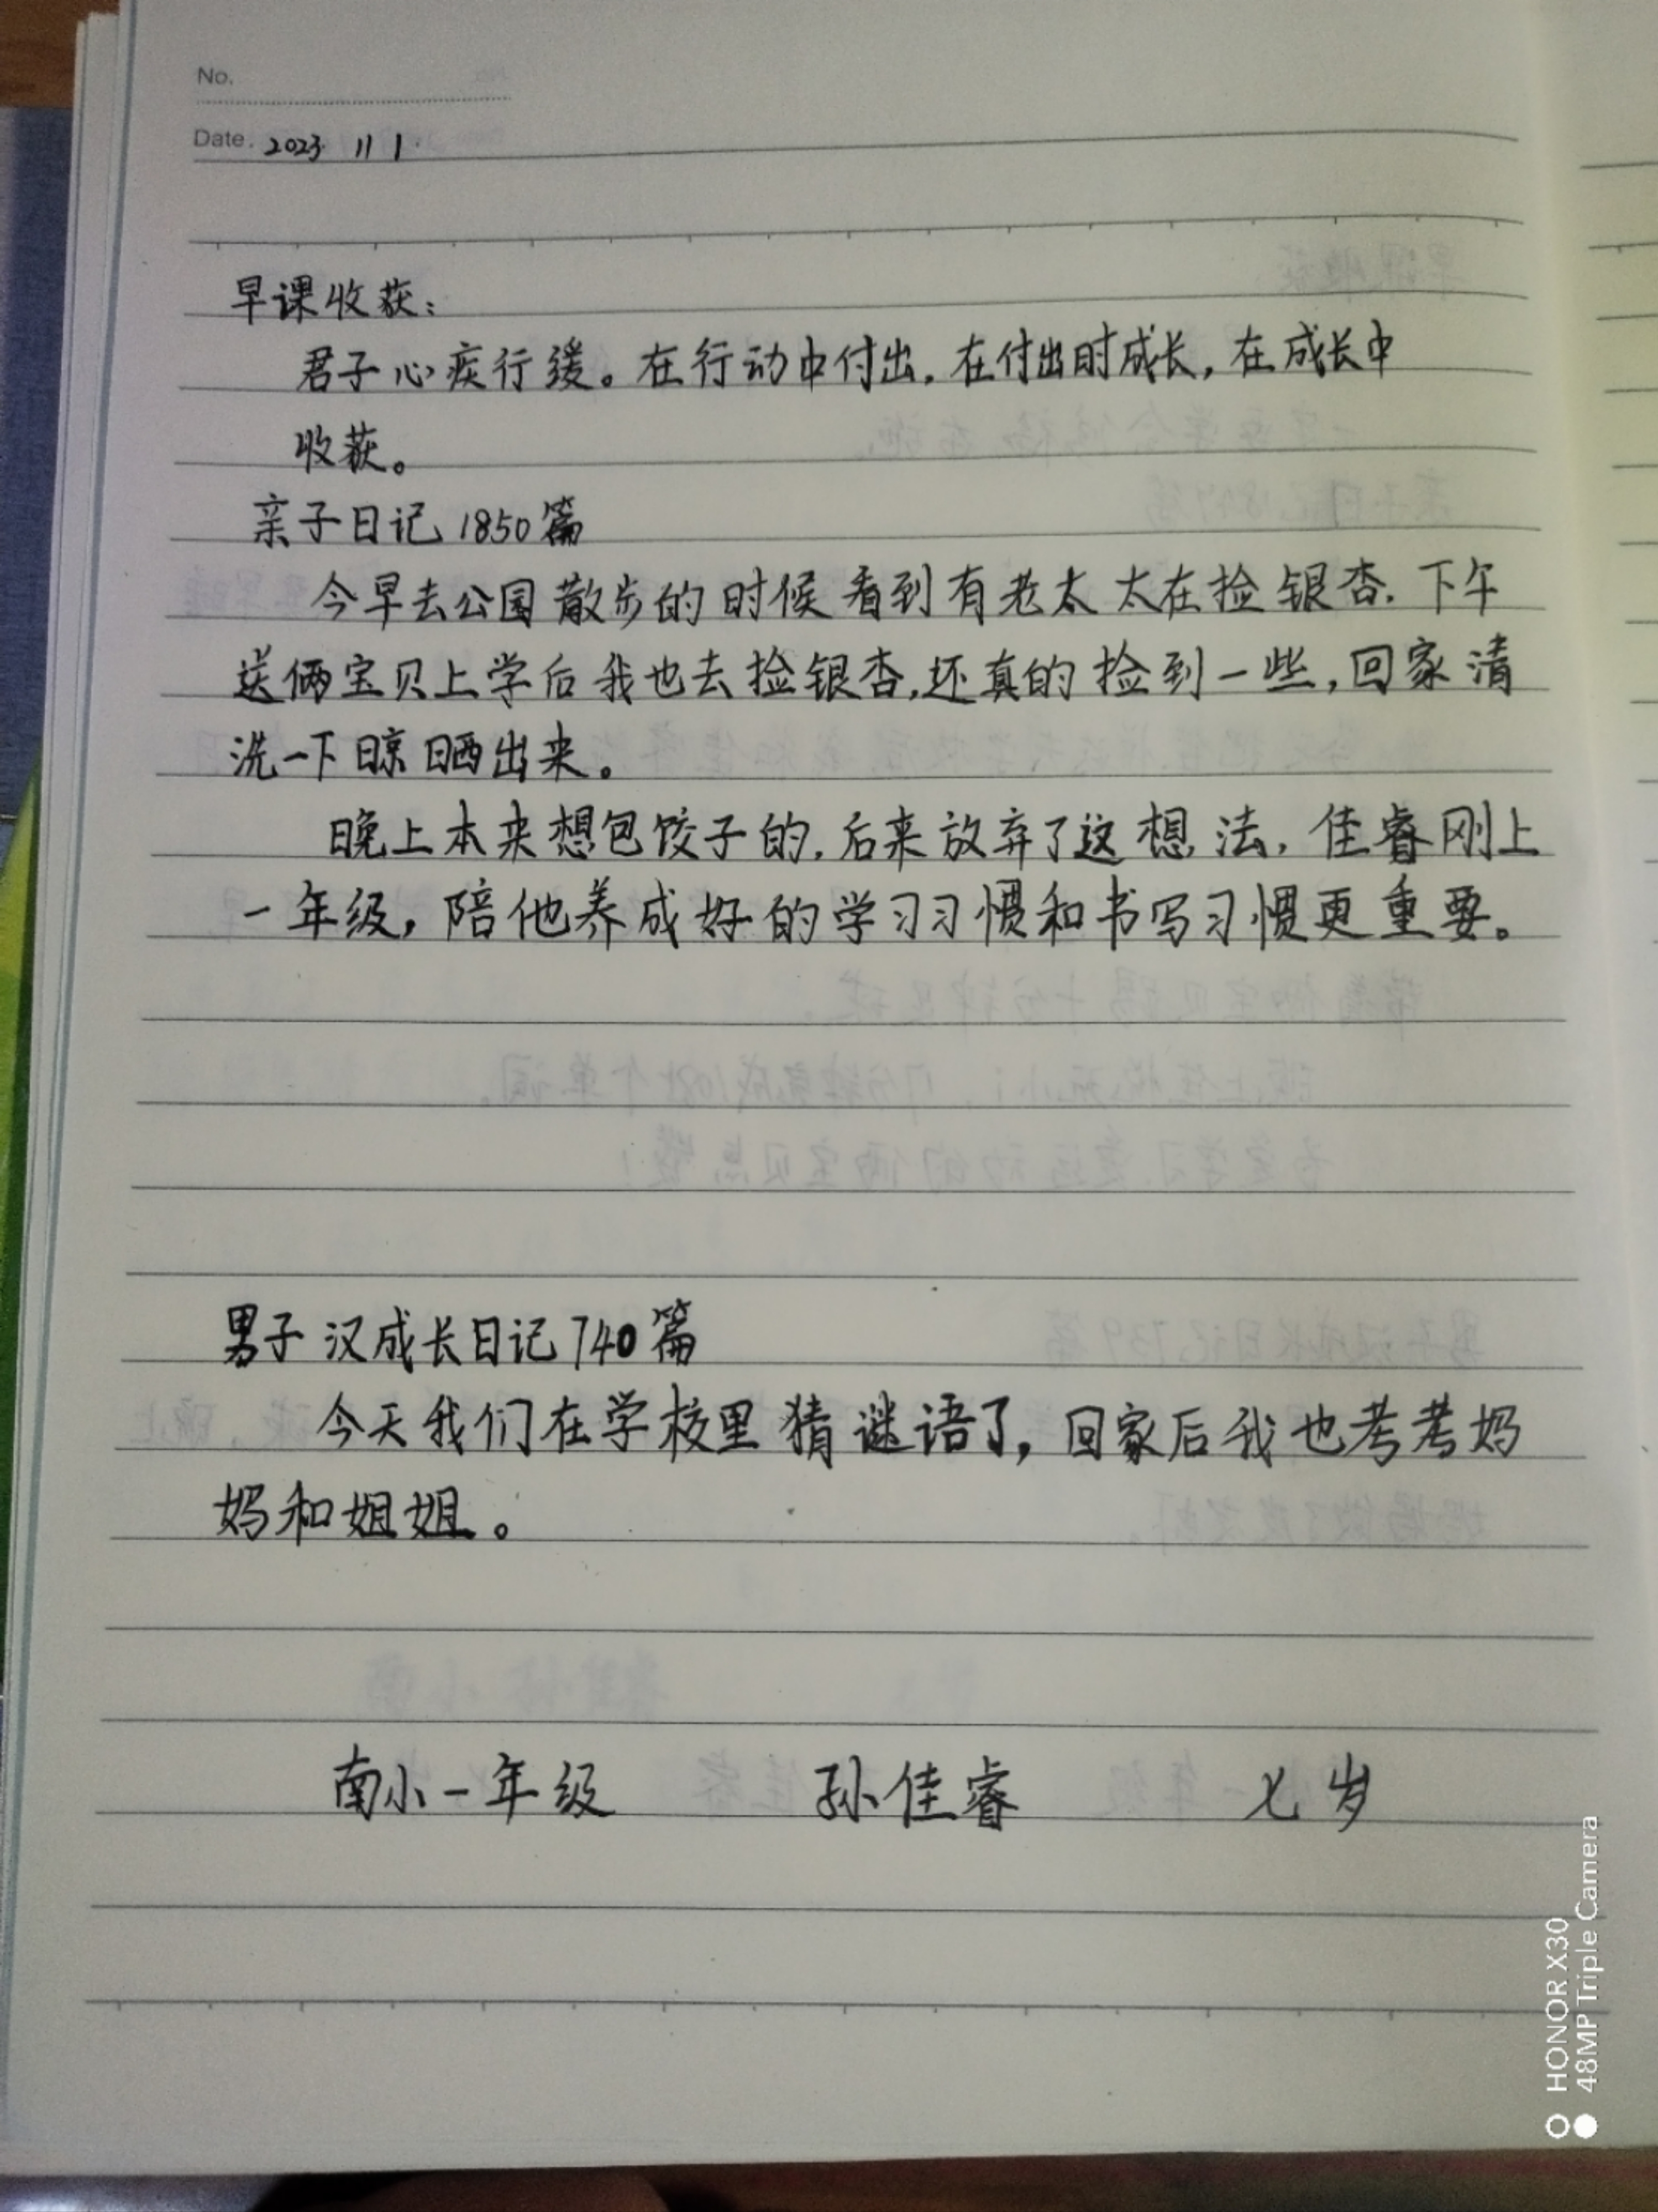 No.
Date. 2023 11 1.
早课收获：
君子心疾行缓。在行动中付出，在付出时成长，在成长中
收获。
亲子日记 1850篇
今早去公园散步的时候看到有老太太在捡银杏．下午
送俩宝贝上学后我也去捡银杏，还真的捡到一些，回家清
洗一下晾晒出来。
晚上本来想包饺子的，后来放弃了这想法，佳睿刚上
一年级，陪他养成好的学习习惯和书写习惯更重要。
男子汉成长日记740篇
今天我们在学校里猜谜语了，回家后我也考考妈
妈和姐姐。
南小一年级 孙佳睿 七岁
HONOR X30
48MP Triple Camera